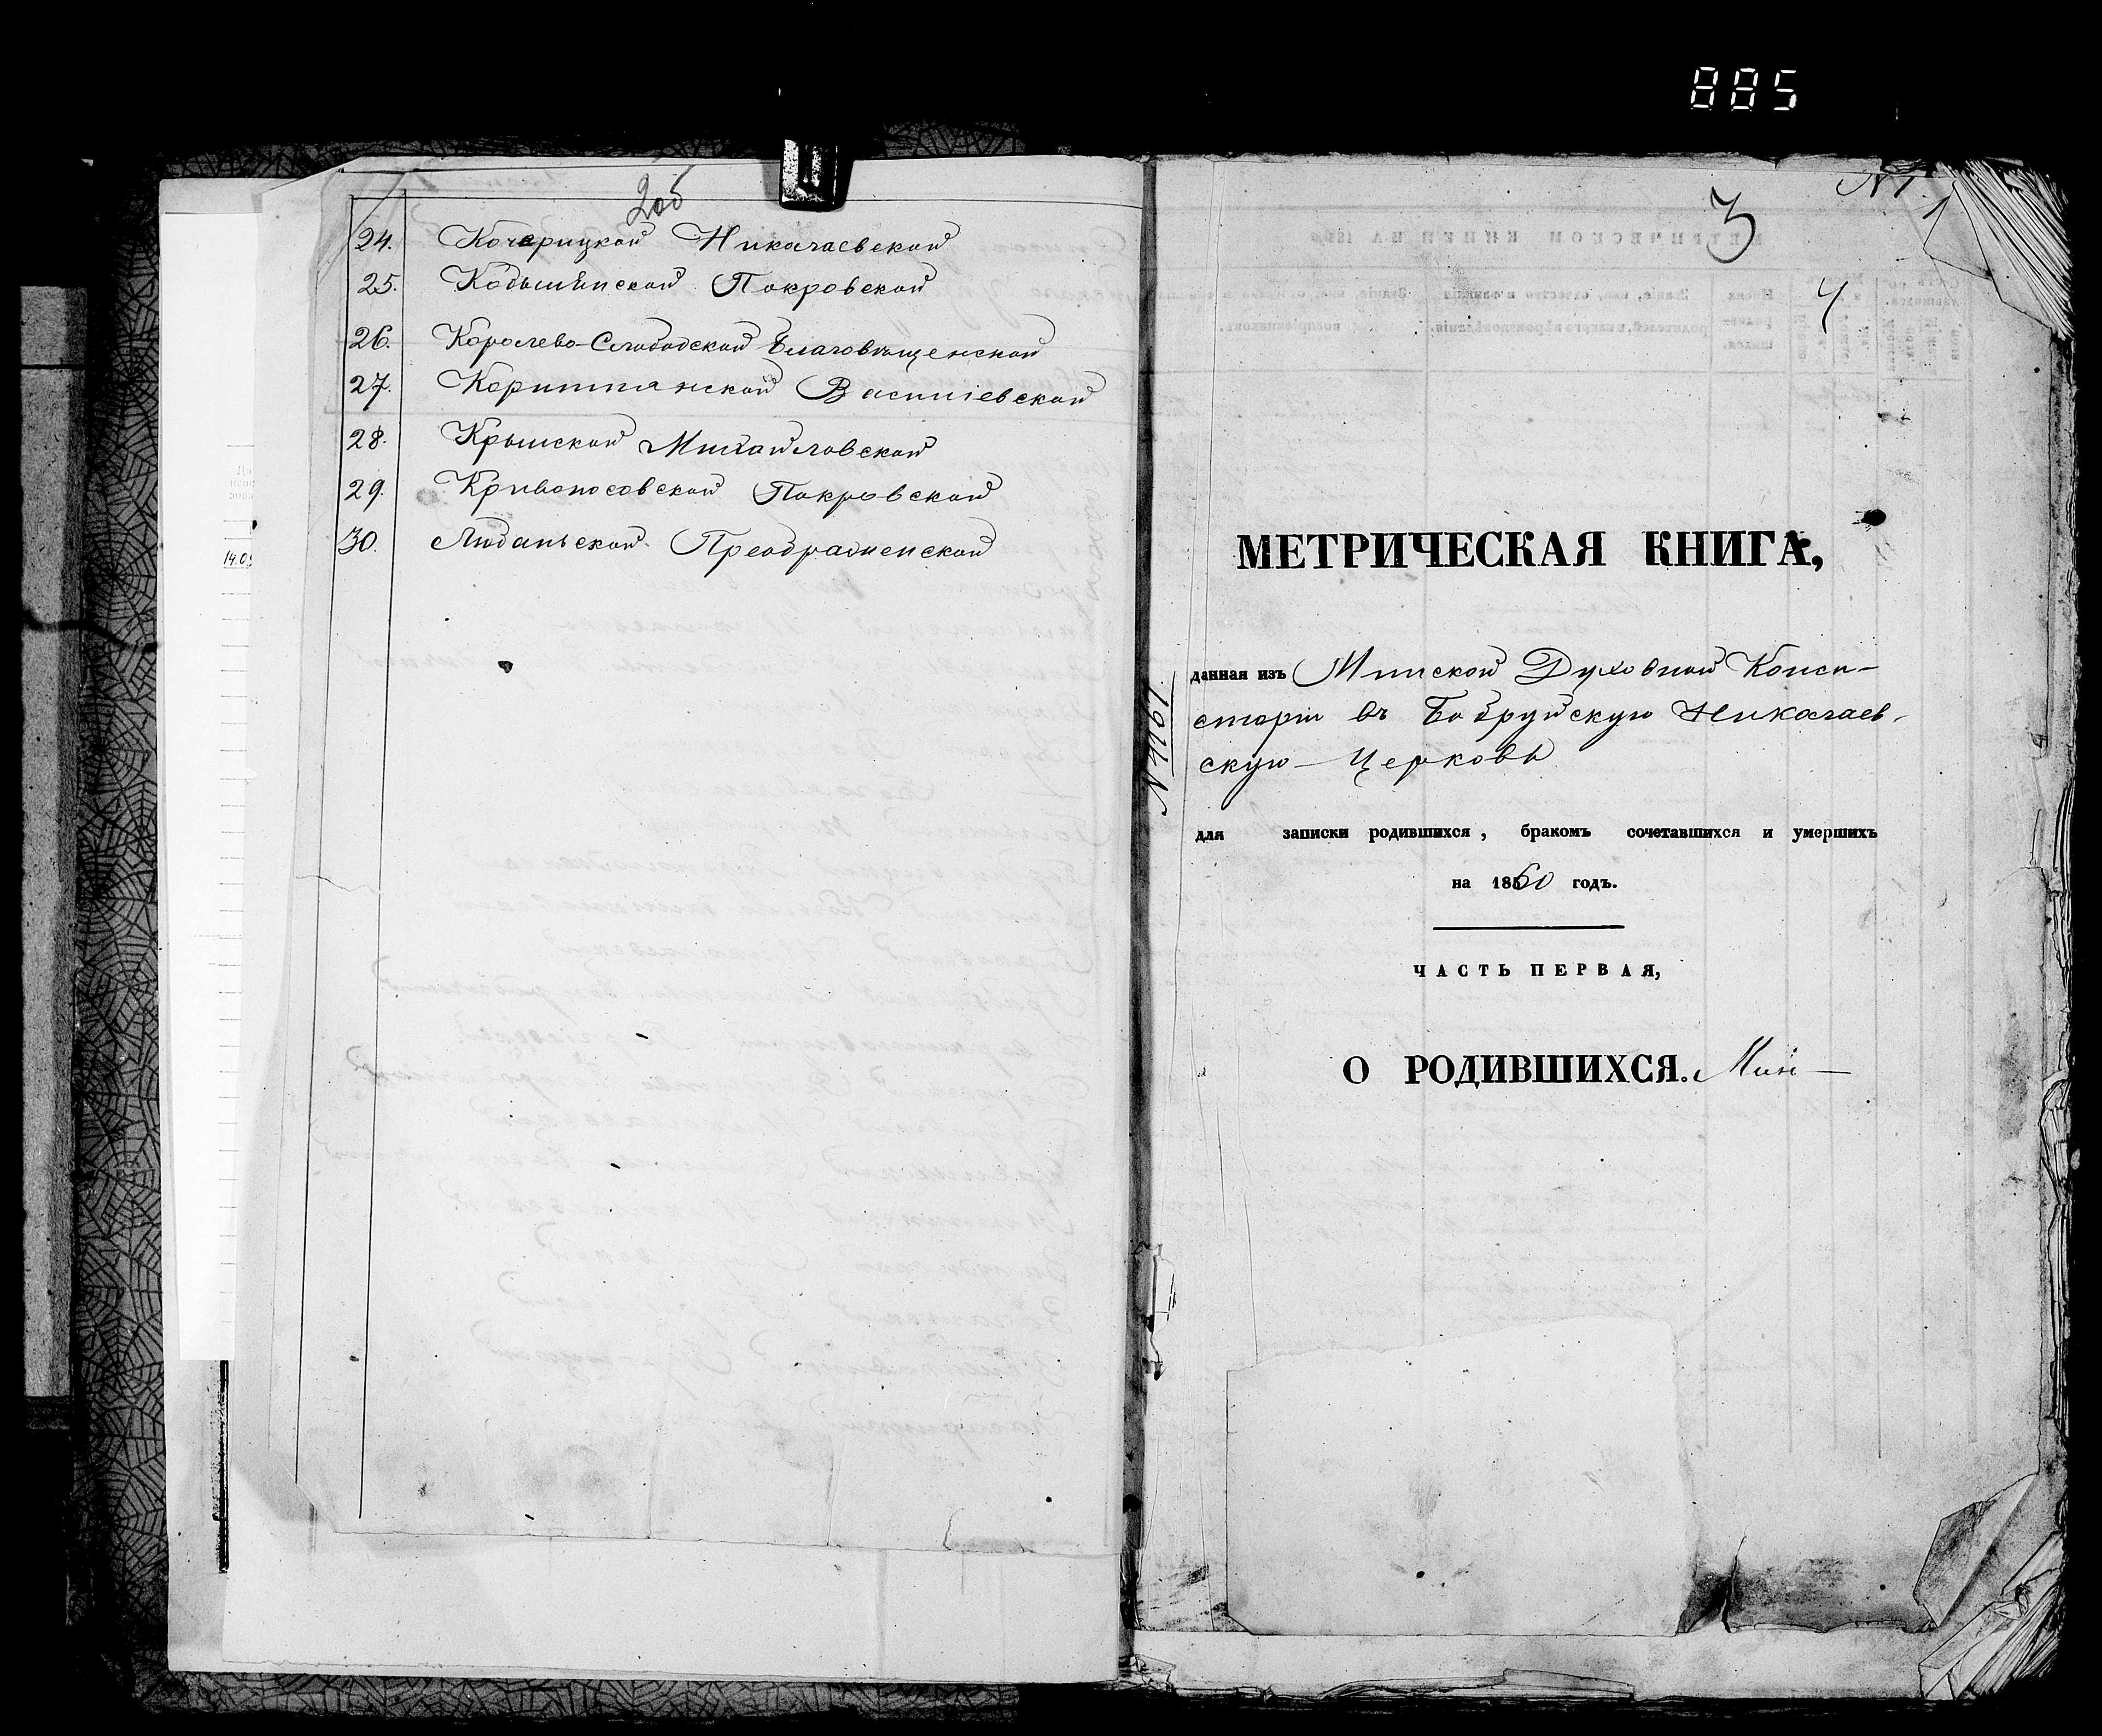 885
2об
24. Кочерицкой Николаевской
25. Кобылянской Покровской
26. Королево-Слободской Благовѣщенской
27. Коритянской Василіевской
28. Крымской Михайловской
29. Кривоносовской Покровской
30. Любаньской Преображенской
14.0
№ 1.
3
4
МЕТРИЧЕСКАЯ КНИГА,
данная изъ Минской Духовной Конси-
сторіи въ Бобруйскую Николаев-
скую Церковь
для записки родившихся, бракомъ сочетавшихся и умершихъ
на 1860 годъ.
ЧАСТЬ ПЕРВАЯ,
О РОДИВШИХСЯ.